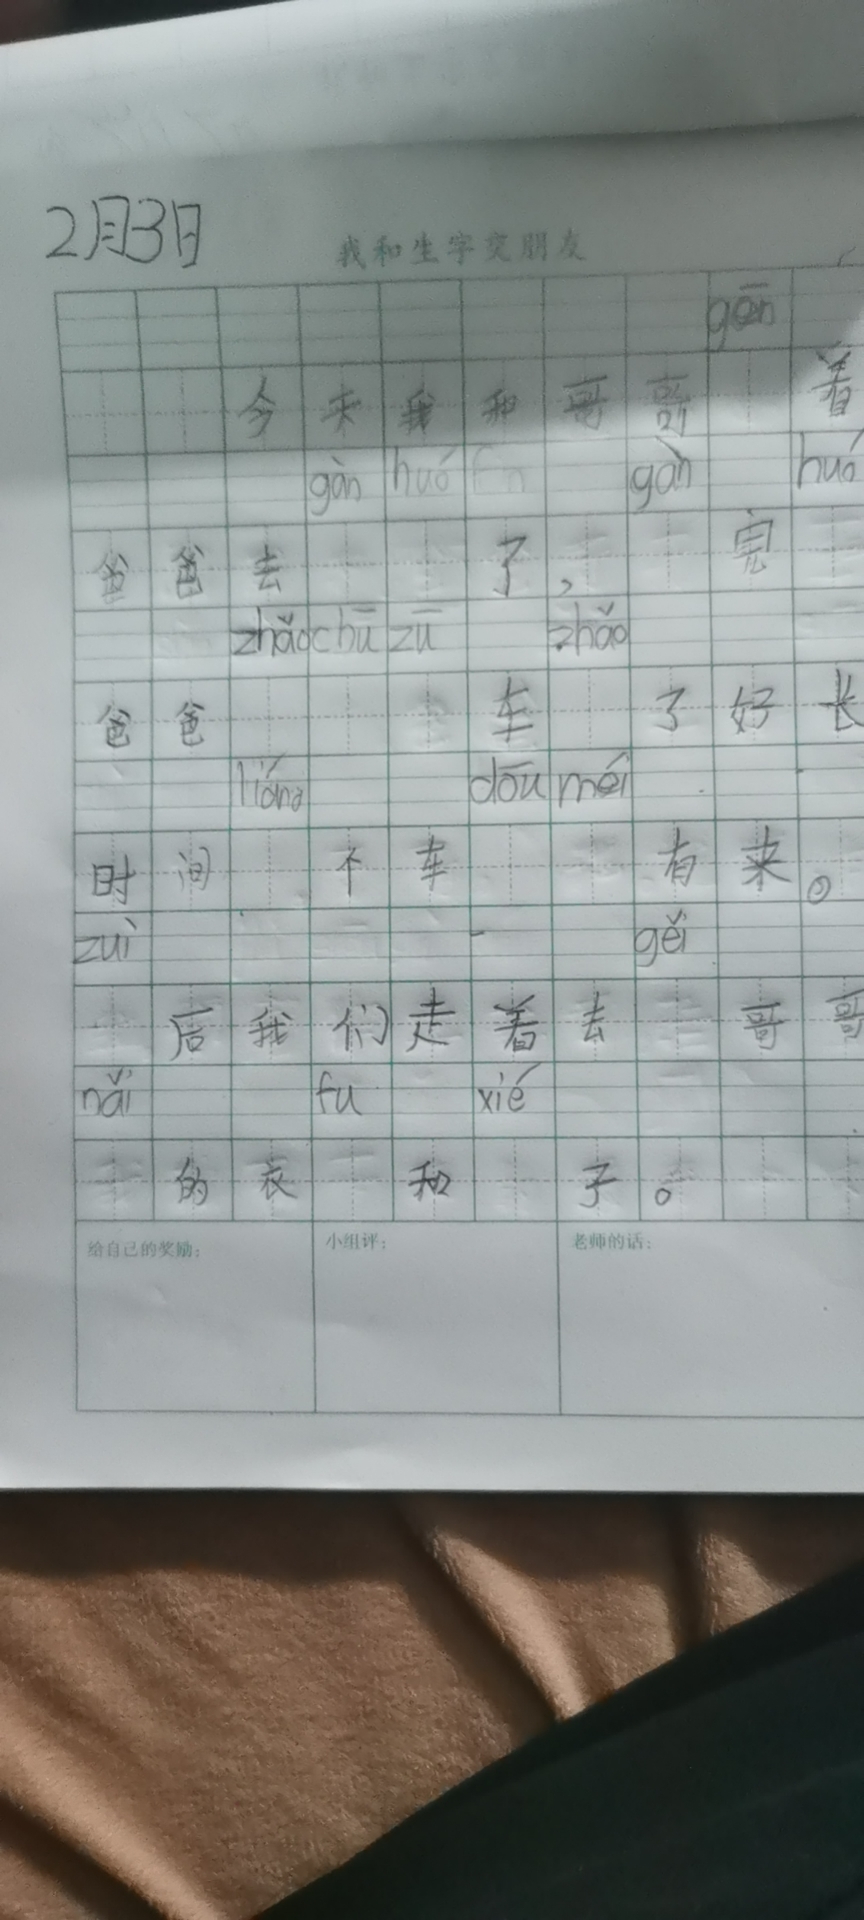 2月3日
我和生字交朋友
gēn
今天我和哥哥 着
gàn huó gàn huó
爸爸去 了， 完
zhǎo chū zū zhǎo
爸爸 车 了好长
liáng dōu méi
时间 个车 有来。
zuì gěi
后我们走着去 哥哥
nǎi fu xié
的衣 和 子。
给自己的奖励： 小组评： 老师的话：